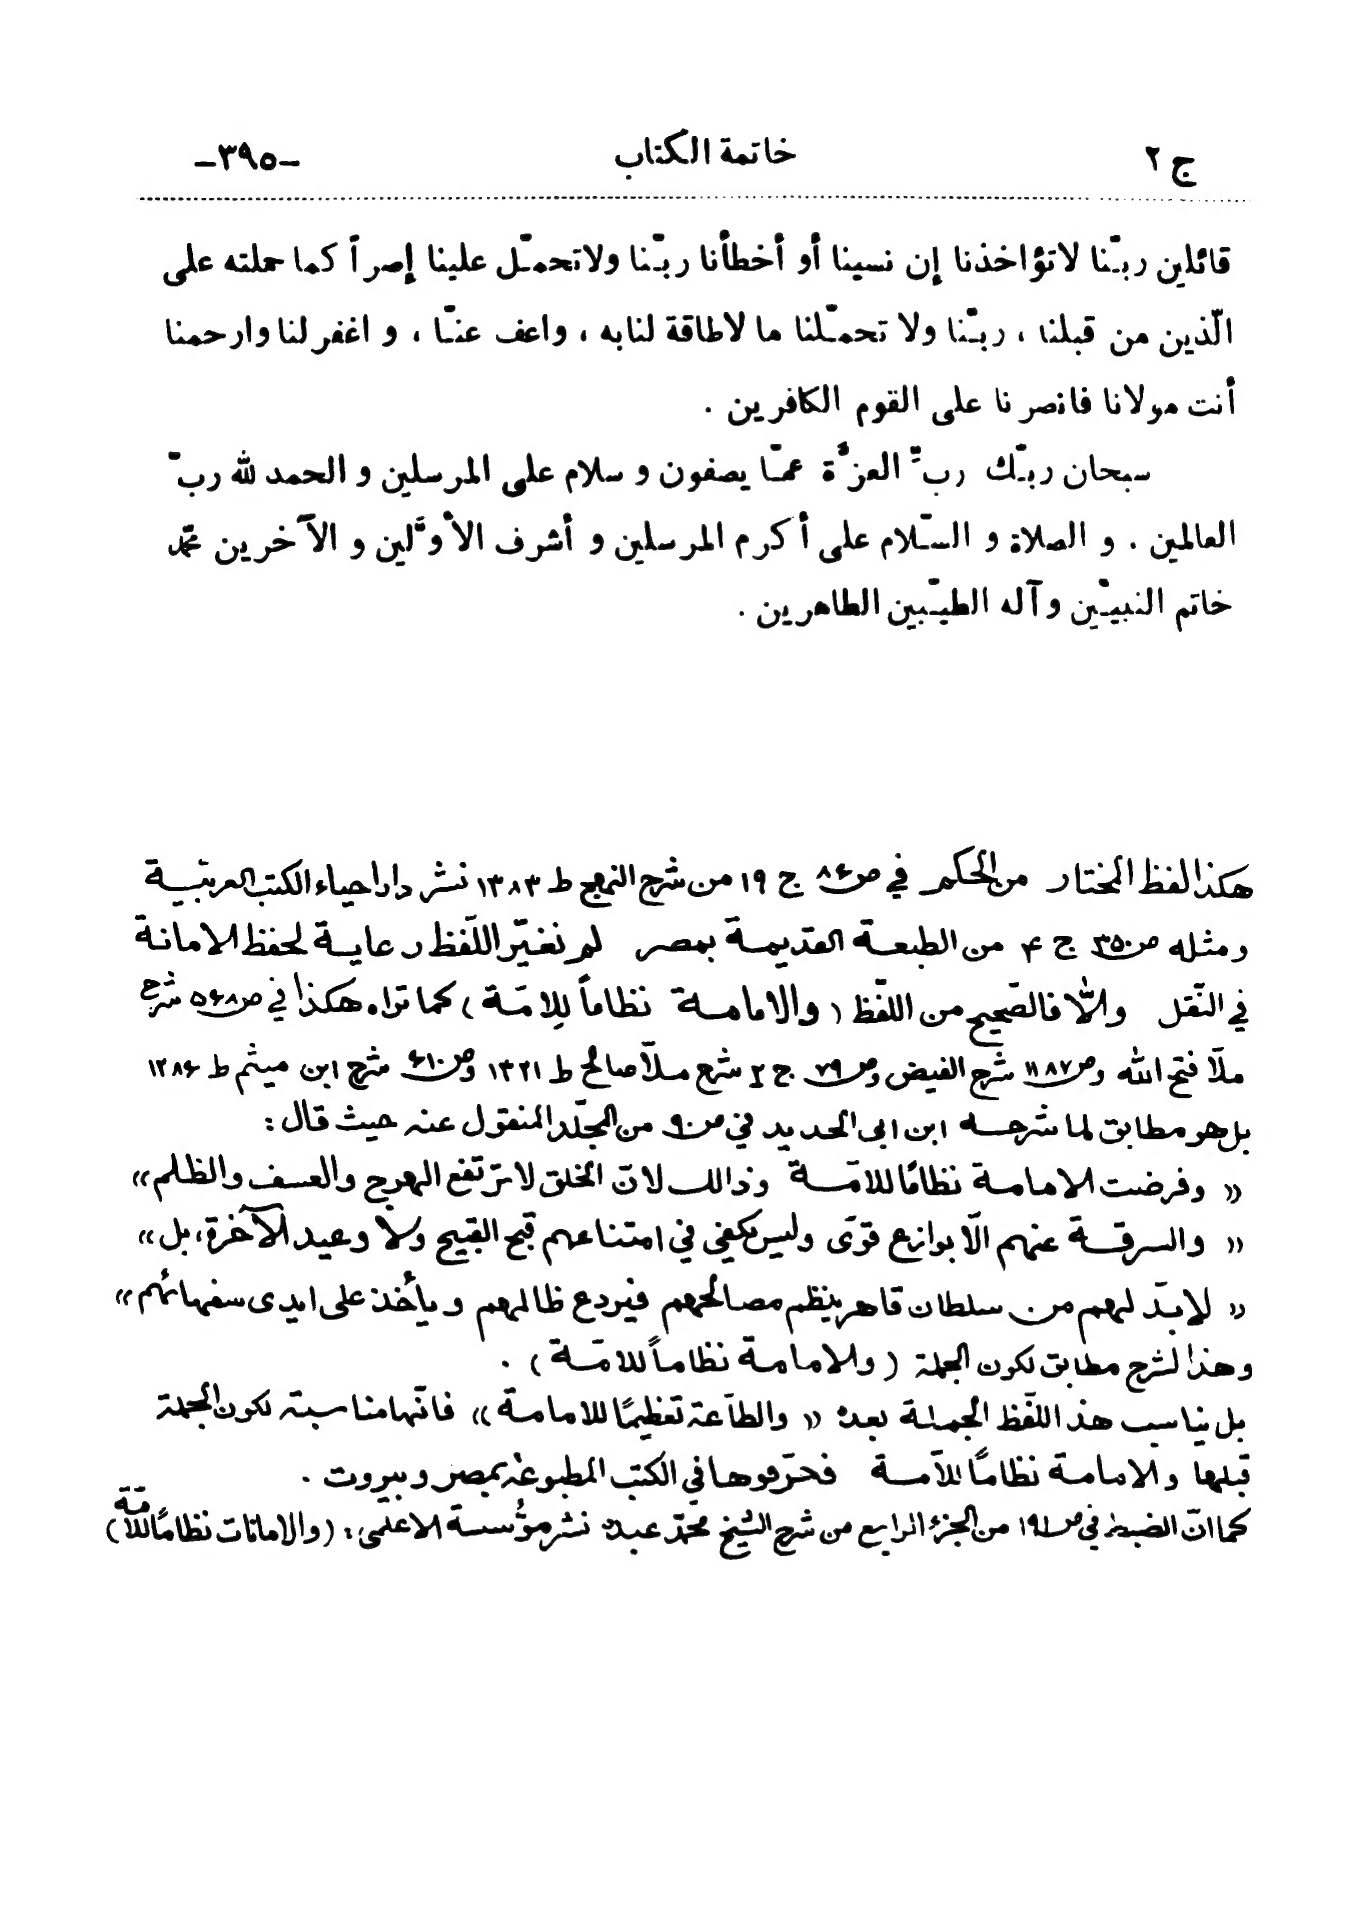 ج ٢ خاتمة الكتاب -٣٩٥-
قائلين ربّنا لاتؤاخذنا إن نسينا أو أخطأنا ربّنا ولاتحمّل علينا إصراً كما حملته على
الّذين من قبلنا ، ربّنا ولا تحمّلنا ما لاطاقة لنابه ، واعف عنّا ، و اغفر لنا وارحمنا
أنت مولانا فانصرنا على القوم الكافرين .
سبحان ربّك ربِّ العزَّة عمّا يصفون و سلام على المرسلين و الحمد لله ربّ
العالمين . و الصلاة و السّلام على أكرم المرسلين و أشرف الأوَّلين و الآخرين محمّد
خاتم النبيّين و آله الطيّبين الطاهرين .
هكذا لفظ المختار من الحكم في ص۸۶ ج ۱۹ من شرح النهج ط ۱۳۸۳ نشر دار احياء الكتب العربيّة
ومثله ص۳۵۰ ج ۴ من الطبعة القديمة بمصر لم نغيّر اللّفظ رعاية لحفظ الامانة
في النّقل والّا فالصّحيح من اللّفظ ( والامامة نظاماً للامّة ) كما تراه هكذا في ص۵۶۸ شرح
ملّا فتح الله وص۱۱۸۷ شرح الفيض وص۷۹ ج ۲ شرع ملّا صالح ط ۱۳۲۱ وص۶۱۰ شرح ابن ميثم ط ۱۲۸۶
بل هو مطابق لما شرحه ابن ابى الحديد في ص۹۰ من المجلّد المنقول عنه حيث قال :
« وفرضت الامامة نظامًا للامّة وذالك لانّ الخلق لا يرتفع الهرج والعسف والظلم »
« والسرقة عنهم الّا بوازع قوّى وليس يكفي في امتناعهم قبح القبيح ولا وعيد الآخرة ، بل »
« لابدّ لهم من سلطان قاهر ينظم مصالحهم فيردع ظالمهم ويأخذ على ايدى سفهائهم »
وهذا الشرح مطابق لكون الجملة ( والامامة نظاماً للامّة ) .
بل يناسب هذ اللّفظ الجملة بعده « والطّاعة تعظيمًا للامامة » فانّها مناسبة لكون الجملة
قبلها والامامة نظامًا للامّة فحرّفوها في الكتب المطبوعة بمصر وبيروت .
كما انّ الضبط في ص۱۹۱ من الجزء الرابع من شرح الشيخ محمّد عبده نشر مؤسسة الاعلمى : ( والامانات نظامًا للامّة )